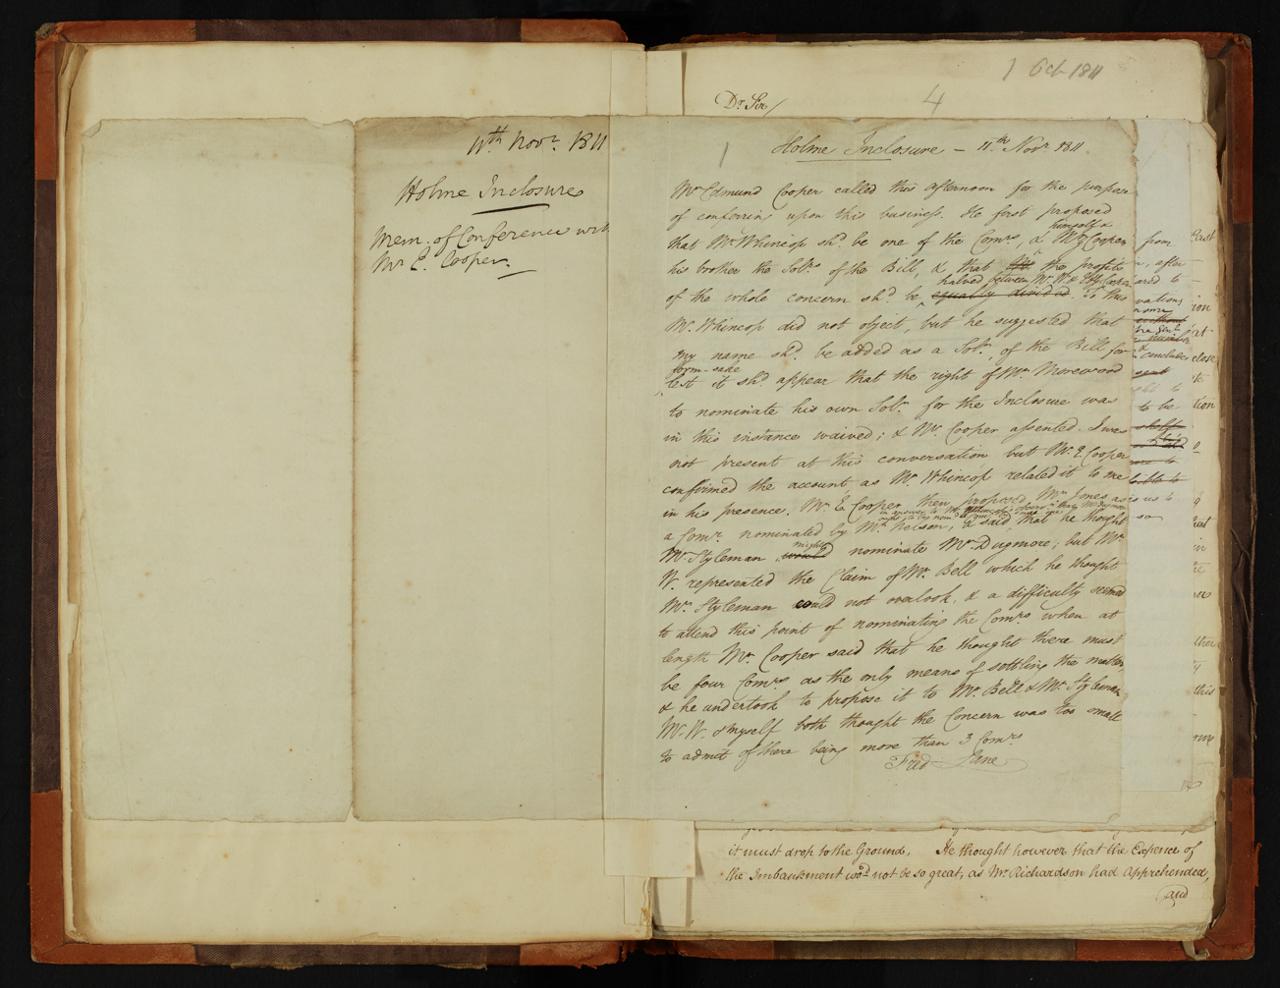 11th Novr. 1811
Holme Inclosure
Mem. of Conference with
Mr E. Cooper.
1 Oct 1811
Dr. Sir/
4
1
Holme Inclosure – 11.th Novr 1811.
Mr Edmund Cooper called this afternoon for the purpose
of conferring upon this business. He first proposed
that Mr Whincop shd. be one of the Comrs, & himself &
his brother the Solrs. of the Bill, & that the profits
of the whole concern shd. be halved between Mr. W. & equally divided. To this
Mr. Whincop did not object, but he suggested that
my name shd. be added as a Solr. of the Bill for
form-sake
lest it shd. appear that the right of Mr. Morewood
to nominate his own Solr. for the Inclosure was
in this instance waived; & Mr. Cooper assented. I was
not present at this conversation but Mr. E. Cooper
confirmed the account as Mr. Whincop related it to me
in his presence. Mr. E Cooper then proposed Mr Jones as
a Comr. nominated by Mr. Nelson, & said that he thought
Mr Styleman might would nominate Mr. Dugmore; but Mr
W. represented the Claim of Mr. Bell which he thought
Mr. Styleman could not overlook, & a difficulty seemed
to attend this point of nominating the Comrs when at
length Mr. Cooper said that he thought there must
be four Comrs. as the only means of settling the matter,
& he undertook to propose it to Mr. Bell & Mr. Styleman
Mr. W. & myself both thought the Concern was too small
to admit of there being more than 3 Comrs.
Fred Lane
it must drop to the Ground, He thought however that the Expence of
the Imbankment wod. not be so great, as Mr. Richardson had Apprehended,
and